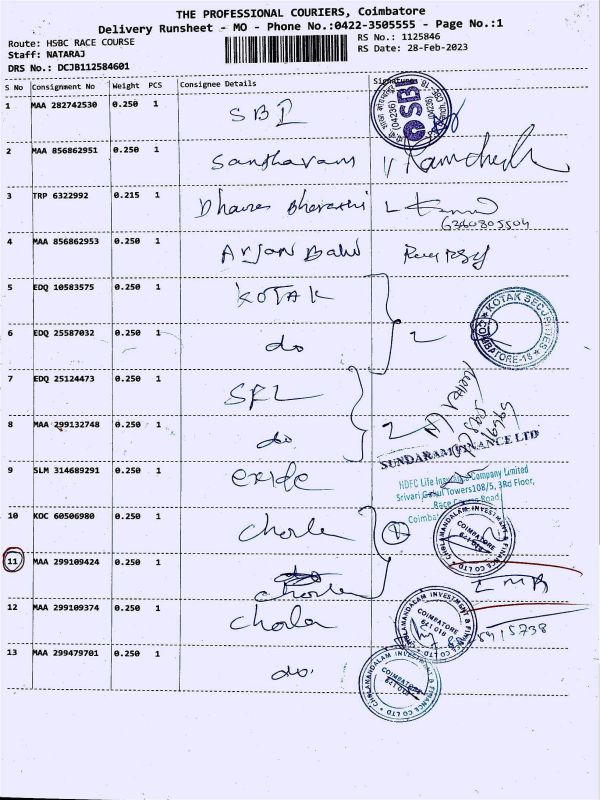 THE PROFESSIONAL COURIERS, Coimbatore
Delivery Runsheet - MO - Phone No.:0422-3505555 - Page No.:1
Route: HSBC RACE COURSE RS No.: 1125846
Staff: NATARAJ RS Date: 28-Feb-2023
DRS No.: DCJB112584601
S No Consignment No Weight PCS Consignee Details Signature
1 MAA 282742530 0.250 1 SBI
2 MAA 856862951 0.250 1 Santharam
3 TRP 6322992 0.215 1 Bharathi
6260805504
4 MAA 856862953 0.250 1 Arjan Babu
5 EDQ 10583575 0.250 1 KOTAK
KOTAK SECURITIES COIMBATORE-18
6 EDQ 25587032 0.250 1 do 2
7 EDQ 25124473 0.250 1 SFL
8 MAA 299132748 0.250 1 do 2
SUNDARAM FINANCE LTD
9 SLM 314689291 0.250 1 exide
HDFC Life Insurance Company Limited
Srivari Gokul Towers108/5, 3Rd Floor,
Race Course Road,
10 KOC 60506980 0.250 1 Chola
CHOLAMANDALAM INVESTMENT & FINANCE CO LTD COIMBATORE 641 018
11 MAA 299109424 0.250 1 Chola
12 MAA 299109374 0.250 1 Chola
CHOLAMANDALAM INVESTMENT & FINANCE CO LTD COIMBATORE 641 018
13 MAA 299479701 0.250 1 do.
CHOLAMANDALAM INVESTMENT & FINANCE CO LTD COIMBATORE 641 018